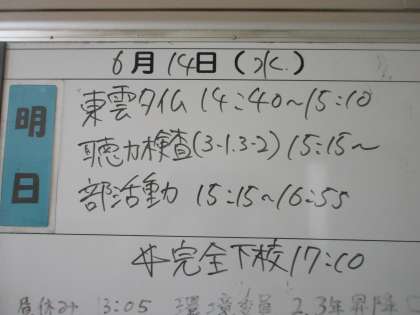 6月14日(水)
明日
東雲タイム 14:40~15:10
聴力検査(3-1.3-2) 15:15~
部活動 15:15~16:55
※完全下校17:10
昼休み 13:05 環境委員 2.3年昇降